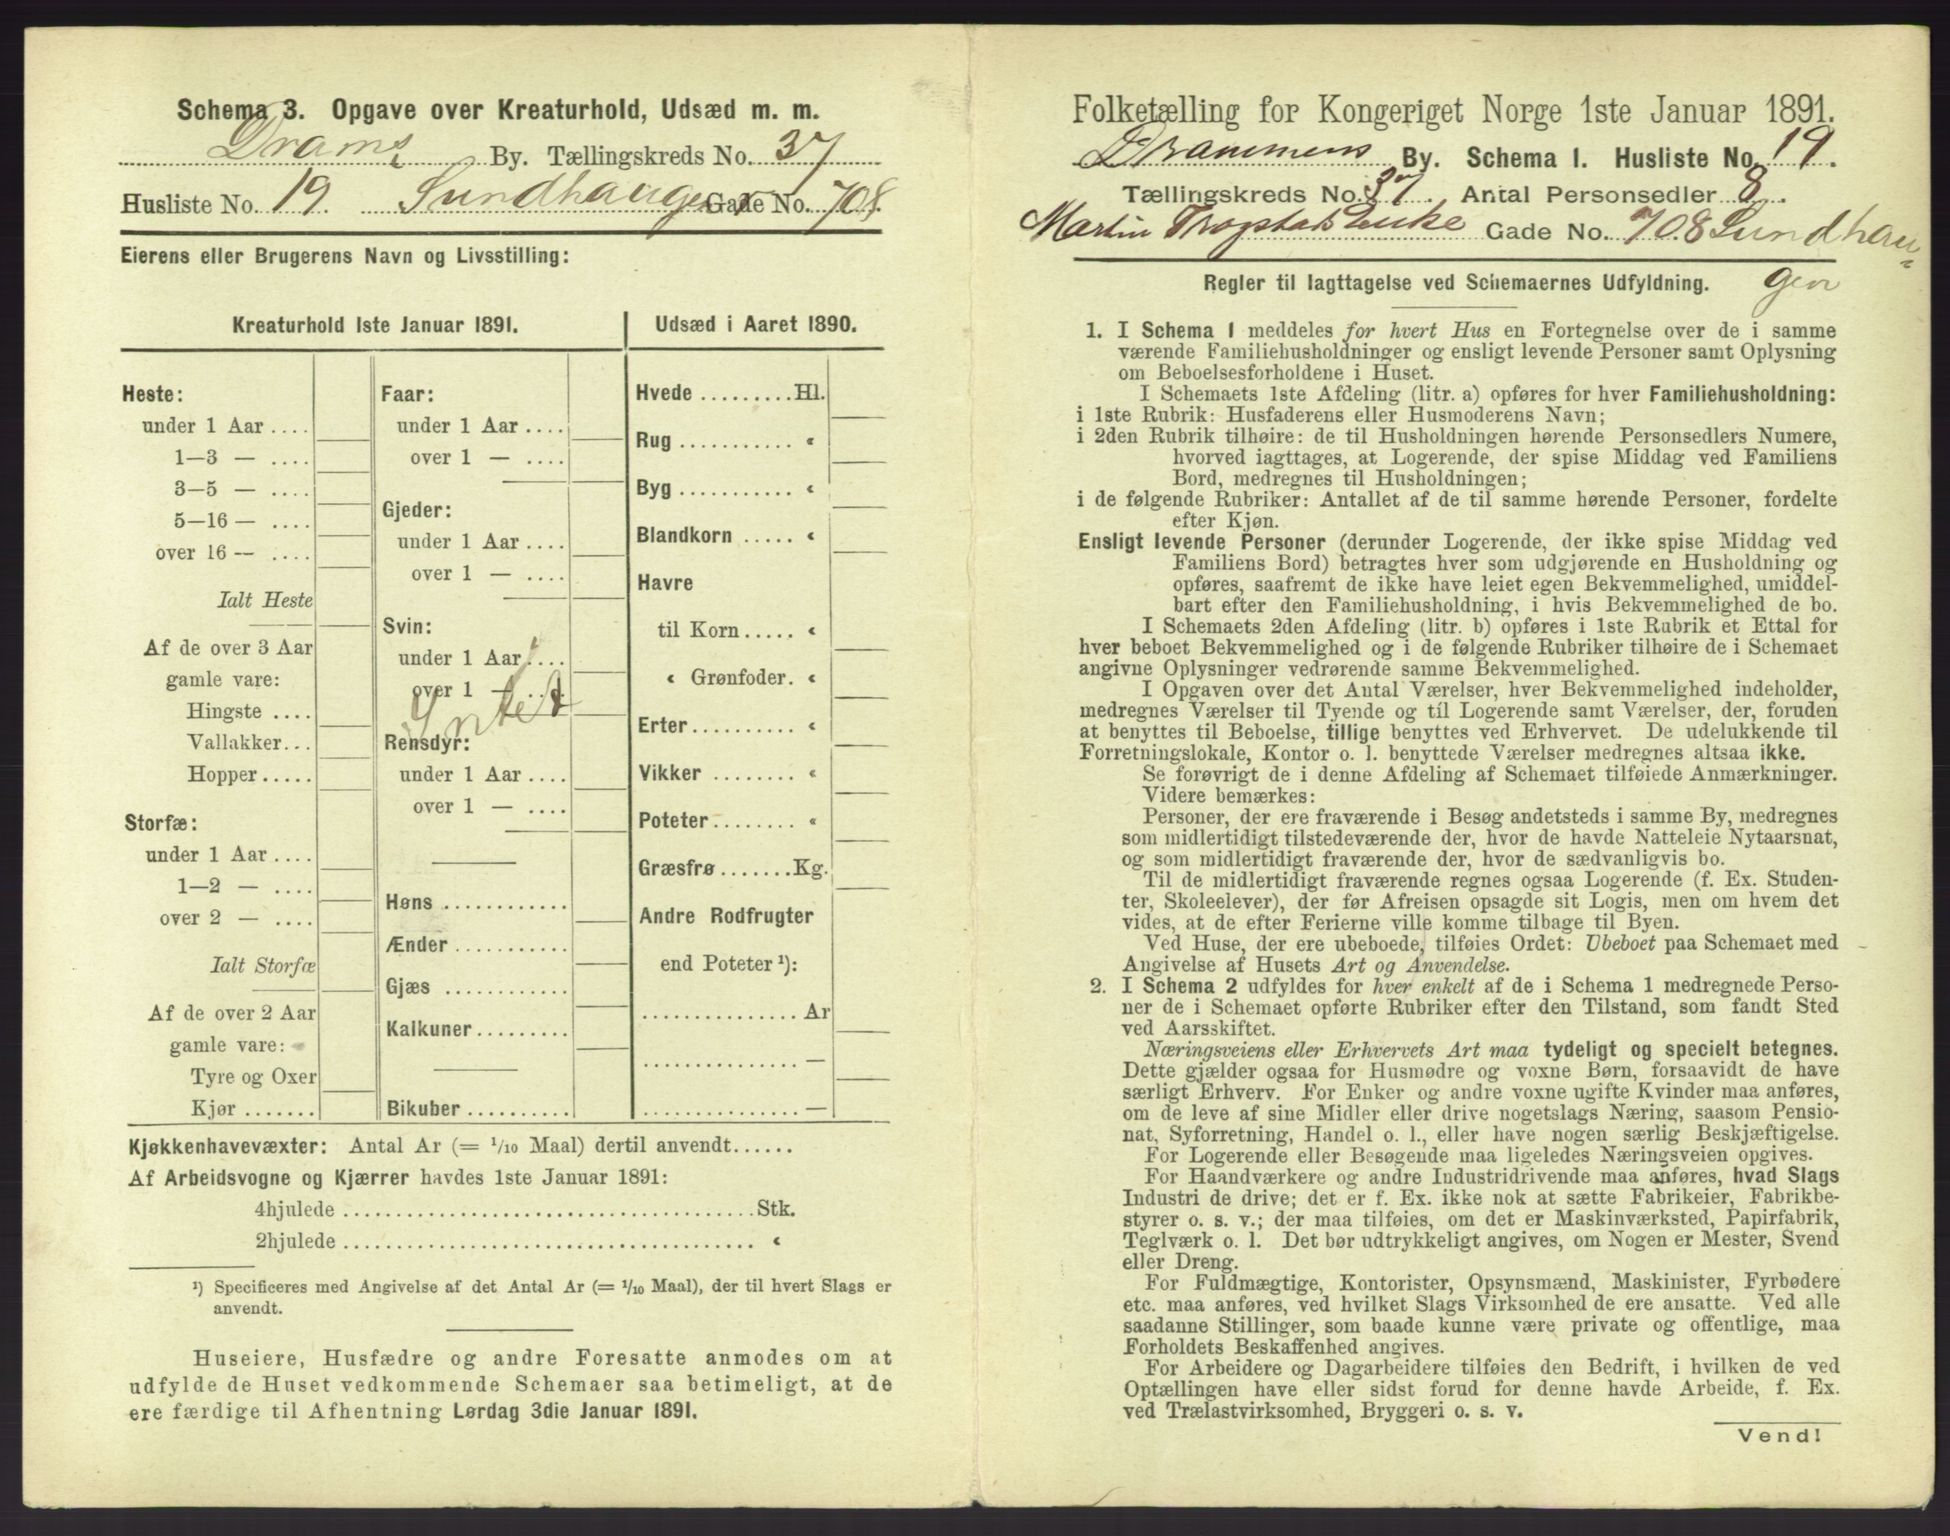 Schema 3. Opgave over Kreaturhold, Udsæd m. m.
Drams By. Tællingskreds No. 37
Husliste No. 19 Sundhaugen Gade No. 708.
Eierens eller Brugerens Navn og Livsstilling:
Kreaturhold 1ste Januar 1891.
Heste:
under 1 Aar ....
1—3 — ....
3—5 — ....
5—16 — ....
over 16 — ....
Ialt Heste
Af de over 3 Aar
gamle vare:
Hingste ....
Vallakker...
Hopper.....
Storfæ:
under 1 Aar ....
1—2 — ....
over 2 — ....
Ialt Storfæ
Af de over 2 Aar
gamle vare:
Tyre og Oxer
Kjør .......
Faar:
under 1 Aar ....
over 1 — ....
Gjeder:
under 1 Aar ....
over 1 — ....
Svin:
under 1 Aar ....
over 1 — ....
Intet
Rensdyr:
under 1 Aar ....
over 1 — ....
Høns ............
Ænder ...........
Gjæs ............
Kalkuner.........
Bikuber ..........
Udsæd i Aaret 1890.
Hvede .........Hl.
Rug ........... «
Byg ........... «
Blandkorn ..... «
Havre
til Korn..... «
« Grønfoder. «
Erter ......... «
Vikker ........ «
Poteter........ «
Græsfrø .......Kg.
Andre Rodfrugter
end Poteter ¹):
............... Ar
............... —
............... —
Kjøkkenhavevæxter: Antal Ar (= 1/10 Maal) dertil anvendt......
Af Arbeidsvogne og Kjærrer havdes 1ste Januar 1891:
4hjulede ........................................Stk.
2hjulede ........................................ «
¹) Specificeres med Angivelse af det Antal Ar (= 1/10 Maal), der til hvert Slags er
anvendt.
Huseiere, Husfædre og andre Foresatte anmodes om at
udfylde de Huset vedkommende Schemaer saa betimeligt, at de
ere færdige til Afhentning Lørdag 3die Januar 1891.
Folketælling for Kongeriget Norge 1ste Januar 1891.
Drammens By. Schema 1. Husliste No. 19.
Tællingskreds No. 37. Antal Personsedler 8.
Martin Trogstads Enke Gade No. 708 Sundhau-
gen
Regler til Iagttagelse ved Schemaernes Udfyldning.
1. I Schema 1 meddeles for hvert Hus en Fortegnelse over de i samme
værende Familiehusholdninger og ensligt levende Personer samt Oplysning
om Beboelsesforholdene i Huset.
I Schemaets 1ste Afdeling (litr. a) opføres for hver Familiehusholdning:
i 1ste Rubrik: Husfaderens eller Husmoderens Navn;
i 2den Rubrik tilhøire: de til Husholdningen hørende Personsedlers Numere,
hvorved iagttages, at Logerende, der spise Middag ved Familiens
Bord, medregnes til Husholdningen;
i de følgende Rubriker: Antallet af de til samme hørende Personer, fordelte
efter Kjøn.
Ensligt levende Personer (derunder Logerende, der ikke spise Middag ved
Familiens Bord) betragtes hver som udgjørende en Husholdning og
opføres, saafremt de ikke have leiet egen Bekvemmelighed, umiddel-
bart efter den Familiehusholdning, i hvis Bekvemmelighed de bo.
I Schemaets 2den Afdeling (litr. b) opføres i 1ste Rubrik et Ettal for
hver beboet Bekvemmelighed og i de følgende Rubriker tilhøire de i Schemaet
angivne Oplysninger vedrørende samme Bekvemmelighed.
I Opgaven over det Antal Værelser, hver Bekvemmelighed indeholder,
medregnes Værelser til Tyende og til Logerende samt Værelser, der, foruden
at benyttes til Beboelse, tillige benyttes ved Erhvervet. De udelukkende til
Forretningslokale, Kontor o. l. benyttede Værelser medregnes altsaa ikke.
Se forøvrigt de i denne Afdeling af Schemaet tilføiede Anmærkninger.
Videre bemærkes:
Personer, der ere fraværende i Besøg andetsteds i samme By, medregnes
som midlertidigt tilstedeværende der, hvor de havde Natteleie Nytaarsnat,
og som midlertidigt fraværende der, hvor de sædvanligvis bo.
Til de midlertidigt fraværende regnes ogsaa Logerende (f. Ex. Studen-
ter, Skoleelever), der før Afreisen opsagde sit Logis, men om hvem det
vides, at de efter Ferierne ville komme tilbage til Byen.
Ved Huse, der ere ubeboede, tilføies Ordet: Ubeboet paa Schemaet med
Angivelse af Husets Art og Anvendelse.
2. I Schema 2 udfyldes for hver enkelt af de i Schema 1 medregnede Perso-
ner de i Schemaet opførte Rubriker efter den Tilstand, som fandt Sted
ved Aarsskiftet.
Næringsveiens eller Erhvervets Art maa tydeligt og specielt betegnes.
Dette gjælder ogsaa for Husmødre og voxne Børn, forsaavidt de have
særligt Erhverv. For Enker og andre voxne ugifte Kvinder maa anføres,
om de leve af sine Midler eller drive nogetslags Næring, saasom Pensio-
nat, Syforretning, Handel o. l., eller have nogen særlig Beskjæftigelse.
For Logerende eller Besøgende maa ligeledes Næringsveien opgives.
For Haandværkere og andre Industridrivende maa anføres, hvad Slags
Industri de drive; det er f. Ex. ikke nok at sætte Fabrikeier, Fabrikbe-
styrer o. s. v.; der maa tilføies, om det er Maskinværksted, Papirfabrik,
Teglværk o. l. Det bør udtrykkeligt angives, om Nogen er Mester, Svend
eller Dreng.
For Fuldmægtige, Kontorister, Opsynsmænd, Maskinister, Fyrbødere
etc. maa anføres, ved hvilket Slags Virksomhed de ere ansatte. Ved alle
saadanne Stillinger, som baade kunne være private og offentlige, maa
Forholdets Beskaffenhed angives.
For Arbeidere og Dagarbeidere tilføies den Bedrift, i hvilken de ved
Optællingen have eller sidst forud for denne havde Arbeide, f. Ex.
ved Trælastvirksomhed, Bryggeri o. s. v.
Vend!